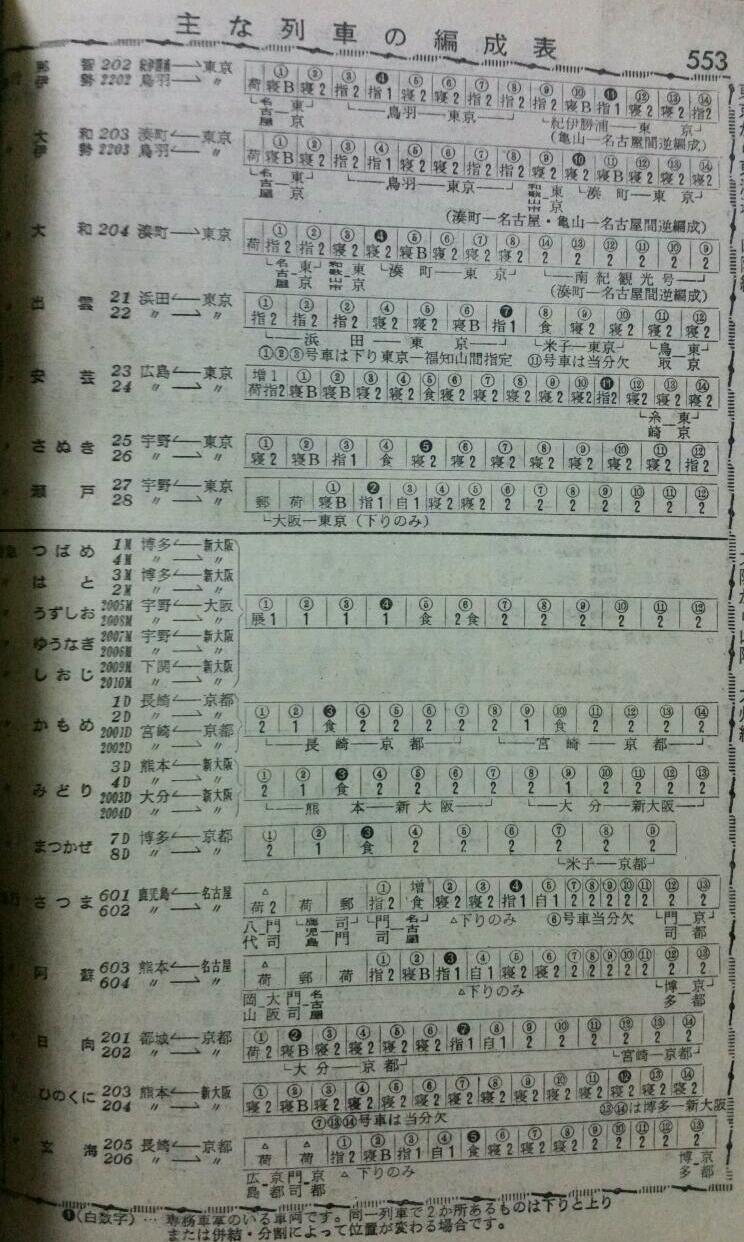 主な列車の編成表
553
202 紀伊勝浦 東京
伊勢 2202 鳥羽 〃
① ② ③ ❹ ⑤ ⑥ ⑦ ⑧ ⑨ ⑩ ⓫ ⑫ ⑬ ⑭
荷 寝B 寝2 指2 指1 寝2
名古屋 東京 鳥羽―東京 紀伊勝浦―東京
(亀山―名古屋間逆編成)
大和 203 湊町 東京
伊勢 2203 鳥羽 〃
① ② ③ ④ ⑤ ⑥ ⑦ ⑧ ⑨ ❿ ⑪ ⑫ ⑬ ⑭
荷 寝B 寝2 指2 指1 寝2 寝2 指2 指2 寝2 寝B 寝2 寝2 寝2
名古屋 東京 鳥羽―東京 和歌山市 東京 湊町―東京
(湊町―名古屋・亀山―名古屋間逆編成)
大和 204 湊町 東京
① ② ③ ❹ ⑤ ⑥ ⑦ ⑧ ⑭ ⑬ ⑫ ⑪ ⑩ ⑨
荷 指2 指2 寝2 寝2 寝B 寝2 寝2 寝2 2 2 2 2 2 2
名古屋 東京 和歌山市 東京 湊町―東京 南紀観光号
(湊町―名古屋間逆編成)
出雲 21 浜田 東京
22 〃 〃
① ② ③ ④ ⑤ ⑥ ❼ ⑧ ⑨ ⑩ ⑪ ⑫
指2 指2 指2 寝2 寝2 寝B 指1 食 寝2 寝2 寝2 寝2
浜田―東京 米子―東京 鳥取 東京
①②③号車は下り東京―福知山間指定 ⑪号車は当分欠
安芸 23 広島 東京
24 〃 〃
増1 ① ② ③ ④ ⑤ ⑥ ⑦ ⑧ ⑨ ⑩ ⓫ ⑫ ⑬ ⑭
荷指2 寝B 寝B 寝2 寝2 食 寝2 寝2 寝2 寝2 寝2 指2 寝2 寝2 寝2
糸崎 東京
さぬき 25 宇野 東京
26 〃 〃
① ② ③ ④ ❺ ⑥ ⑦ ⑧ ⑨ ⑩ ⑪ ⑫
寝2 寝B 指1 食 寝2 寝2 寝2 寝2 寝2 寝2 寝2 指2
瀬戸 27 宇野 東京
28 〃 〃
① ❷ ③ ④ ⑤ ⑥ ⑦ ⑧ ⑨ ⑩ ⑪ ⑫
郵 荷 寝B 指1 自1 寝2 寝2 2 2 2 2 2 2 2
大阪―東京(下りのみ)
つばめ 1M 博多 新大阪
4M 〃 〃
はと 3M 博多 新大阪
2M 〃 〃
うずしお 2005M 宇野 大阪
2008M 〃 〃
① ② ③ ❹ ⑤ ⑥ ⑦ ⑧ ⑨ ⑩ ⑪ ⑫
展1 1 1 1 食 2食 2 2 2 2 2 2
ゆうなぎ 2007M 宇野 新大阪
2006M 〃 〃
しおじ 2009M 下関 新大阪
2010M 〃 〃
かもめ 1D 長崎 京都
2D 〃 〃
2001D 宮崎 京都
2002D 〃 〃
① ② ❸ ④ ⑤ ⑥ ⑦ ⑧ ⑨ ⑩ ⑪ ⑫ ⑬ ⑭
2 1 食 2 2 2 2 2 1 食 2 2 2 2
長崎―京都 宮崎―京都
みどり 3D 熊本 新大阪
4D 〃 〃
2003D 大分 新大阪
2004D 〃 〃
① ② ❸ ④ ⑤ ⑥ ⑦ ⑧ ⑨ ⑩ ⑪ ⑫ ⑬
2 1 食 2 2 2 2 2 1 2 2 2 2
熊本―新大阪 大分―新大阪
まつかぜ 7D 博多 京都
8D 〃 〃
① ② ❸ ④ ⑤ ⑥ ⑦ ⑧ ⑨
2 1 食 2 2 2 2 2 2
米子―京都
さつま 601 鹿児島 名古屋
602 〃 〃
△ ① 増 ② ③ ❹ ⑤ ⑦ ⑧ ⑨ ⑩ ⑪ ⑫ ⑬
荷2 荷 郵 指2 食 寝2 寝2 指1 自1 2 2 2 2 2 2 2
八代 門司 鹿児島 門司 門司 名古屋 △下りのみ ⑥号車当分欠 門司 京都
阿蘇 603 熊本 名古屋
604 〃 〃
△ ① ② ❸ ④ ⑤ ⑥ ⑦ ⑧ ⑨ ⑩ ⑪ ⑫ ⑬
荷 郵 荷 指2 寝B 指1 自1 寝2 寝2 2 2 2 2 2 2 2
岡山 大阪 門司 名古屋 △下りのみ 博多 京都
日向 201 都城 京都
202 〃 〃
① ❷ ③ ④ ⑤ ⑥ ❼ ⑧ ⑨ ⑩ ⑪ ⑫ ⑬ ⑭
荷2 寝B 寝2 寝2 寝2 寝2 指1 自1 2 2 2 2 2 2
大分―京都 宮崎―京都
ひのくに 203 熊本 新大阪
204 〃 〃
① ② ③ ④ ⑤ ⑥ ⑦ ⑧ ⑨ ⑩ ⑪ ⓬ ⑬ ⑭
寝2 寝B 寝B 寝2 寝2 寝2 寝2 寝2 寝2 寝2 寝2 寝2 寝2 寝2
⑦⑬⑭号車は当分欠 ⑬⑭は博多―新大阪
玄海 205 長崎 京都
206 〃 〃
△ △ ① ② ③ ④ ❺ ⑥ ⑦ ⑧ ⑨ ⑩ ⑪ ⑫ ⑬
荷 荷 指2 寝B 指1 自1 食 寝2 寝2 寝2 2 2 2 2 2
広島 京都 門司 京都 △下りのみ 博多 京都
❶(白数字)… 専務車掌のいる車両です。同一列車で2か所あるものは下りと上り
または併結・分割によって位置が変わる場合です。